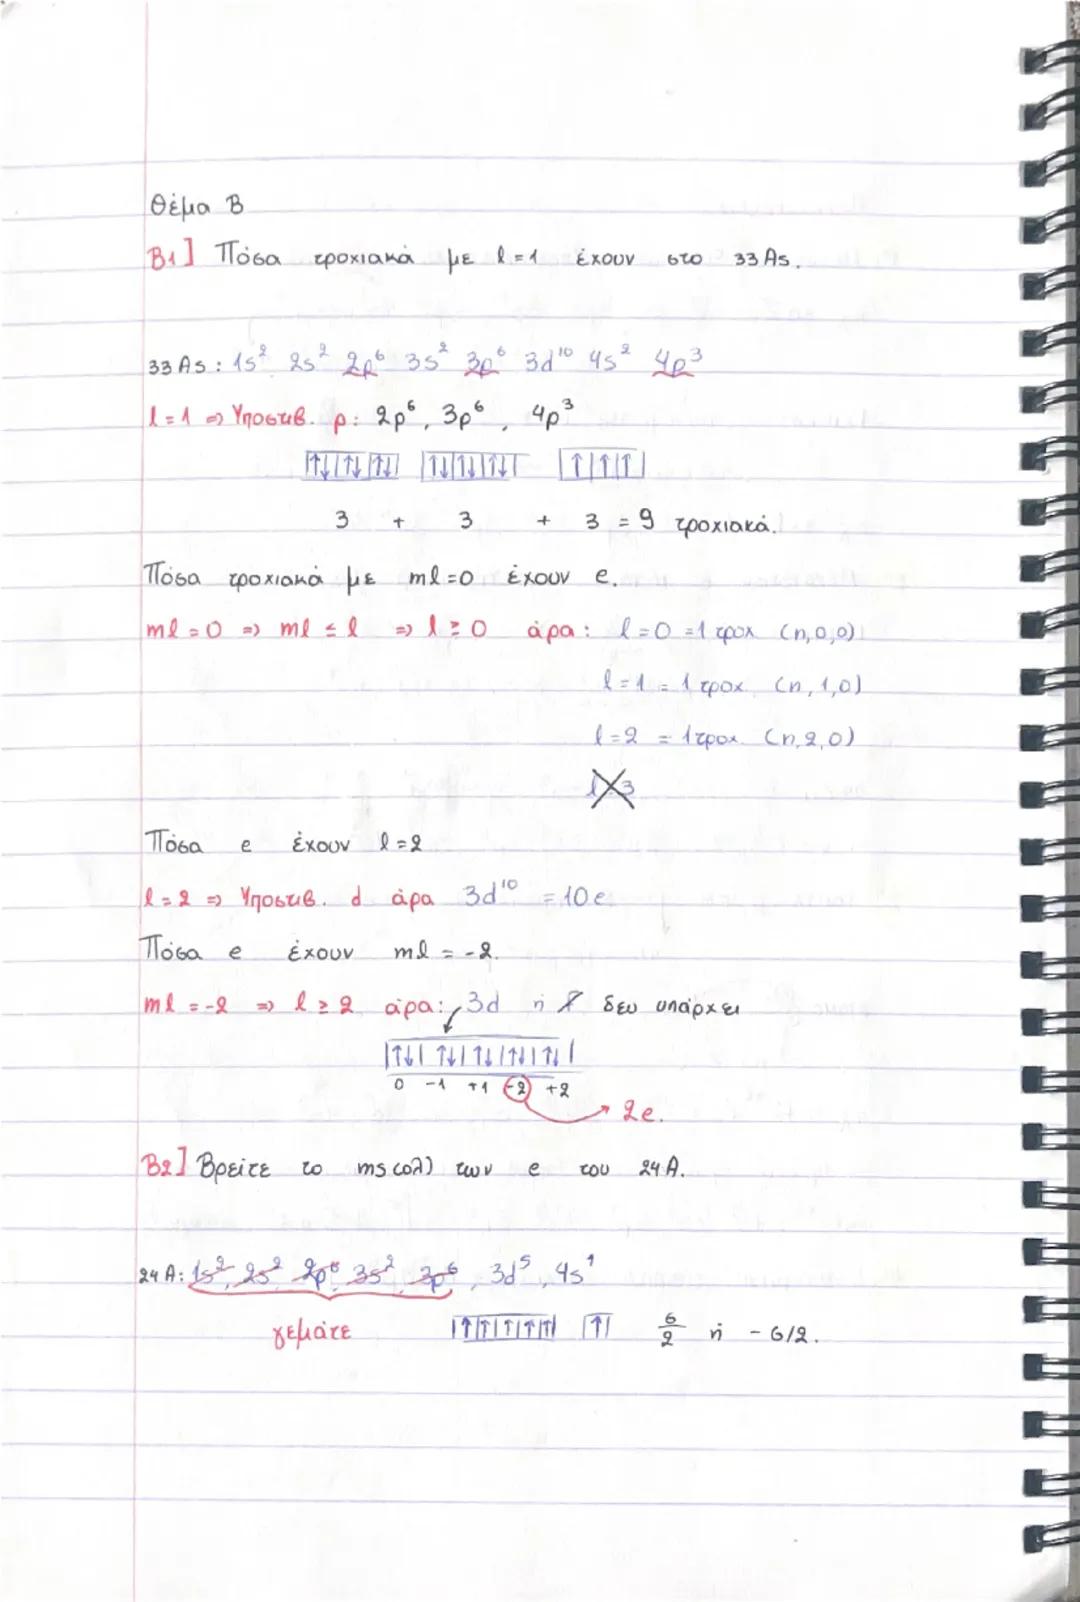 Θέμα Β
Β1] Πόσα τροχιακά με l=1 έχουν στο 33As.
33As: 1s² 2s² 2p⁶ 3s² 3p⁶ 3d¹⁰ 4s² 4p³
l=1 => Υποστιβ. p: 2p⁶, 3p⁶, 4p³
|↑↓|↑↓|↑↓| |↑↓|↑↓|↑↓| |↑|↑|↑|
3 + 3 + 3 = 9 τροχιακά.
Πόσα τροχιακά με ml=0 έχουν e.
ml=0 => ml ≤ l => l ≥ 0 άρα: l=0 =1 τροχ (n,0,0)
l=1 = 1 τροχ. (n,1,0)
l=2 = 1 τροχ. (n,2,0)
Πόσα e έχουν l=2
l=2 => Υποστιβ. d άρα 3d¹⁰ = 10e
Πόσα e έχουν ml = -2.
ml = -2 => l ≥ 2 άρα: 3d ή f δεν υπάρχει
|↑↓|↑↓|↑↓|↑↓|↑↓|
0 -1 +1 -2 +2
2e.
Β2] Βρείτε το ms(ολ) των e του 24A.
24A: 1s², 2s² 2p⁶ 3s² 3p⁶, 3d⁵, 4s¹
γεμάτε |↑|↑|↑|↑|↑| |↑| 6/2 ή - 6/2.